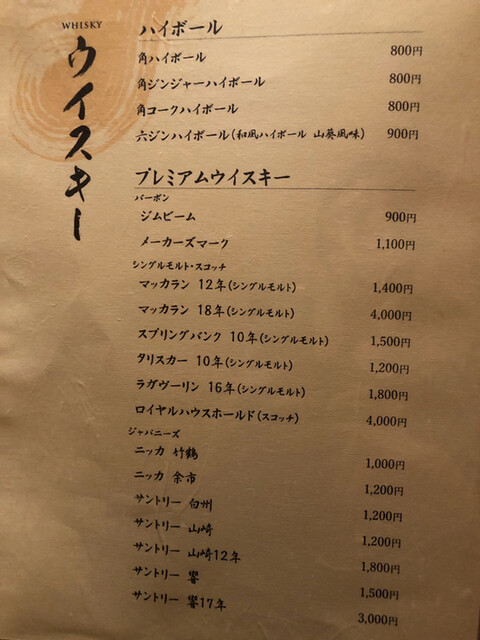 WHISKY
ウイスキー
ハイボール
角ハイボール 800円
角ジンジャーハイボール 800円
角コークハイボール 800円
六ジンハイボール(和風ハイボール 山葵風味) 900円
プレミアムウイスキー
バーボン
ジムビーム 900円
メーカーズマーク 1,100円
シングルモルト・スコッチ
マッカラン 12年(シングルモルト) 1,400円
マッカラン 18年(シングルモルト) 4,000円
スプリングバンク 10年(シングルモルト) 1,500円
タリスカー 10年(シングルモルト) 1,200円
ラガヴーリン 16年(シングルモルト) 1,800円
ロイヤルハウスホールド(スコッチ) 4,000円
ジャパニーズ
ニッカ 竹鶴 1,000円
ニッカ 余市 1,200円
サントリー 白州 1,200円
サントリー 山崎 1,200円
サントリー 山崎12年 1,800円
サントリー 響 1,500円
サントリー 響17年 3,000円